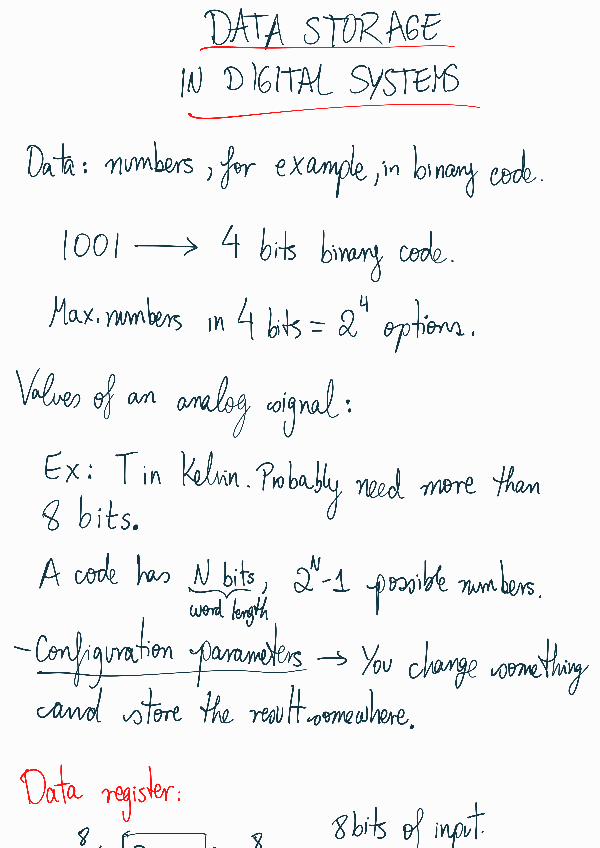 DATA STORAGE
IN DIGITAL SYSTEMS
Data: numbers, for example, in binary code.
1001 → 4 bits binary code.
Max. numbers in 4 bits = 2^4 options.
Values of an analog signal:
Ex: T in Kelvin. Probably need more than
8 bits.
A code has N bits, 2^N-1 possible numbers.
word length
- Configuration parameters → You change something
cand store the result somewhere.
Data register:
8 8 8 bits of input.